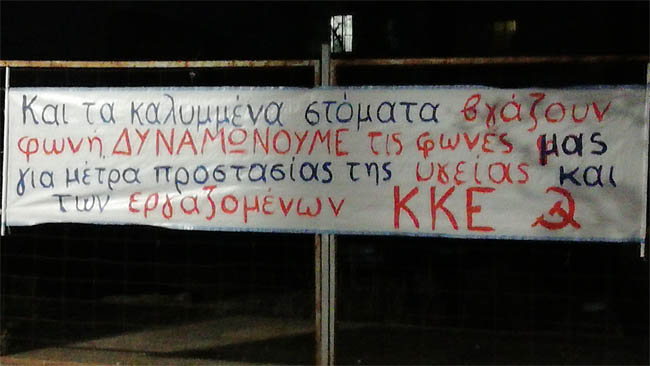 Και τα καλυμμένα στόματα βγάζουν
φωνή, ΔΥΝΑΜΩΝΟΥΜΕ τις φωνές μας
για μέτρα προστασίας της υγείας και
των εργαζομένων ΚΚΕ